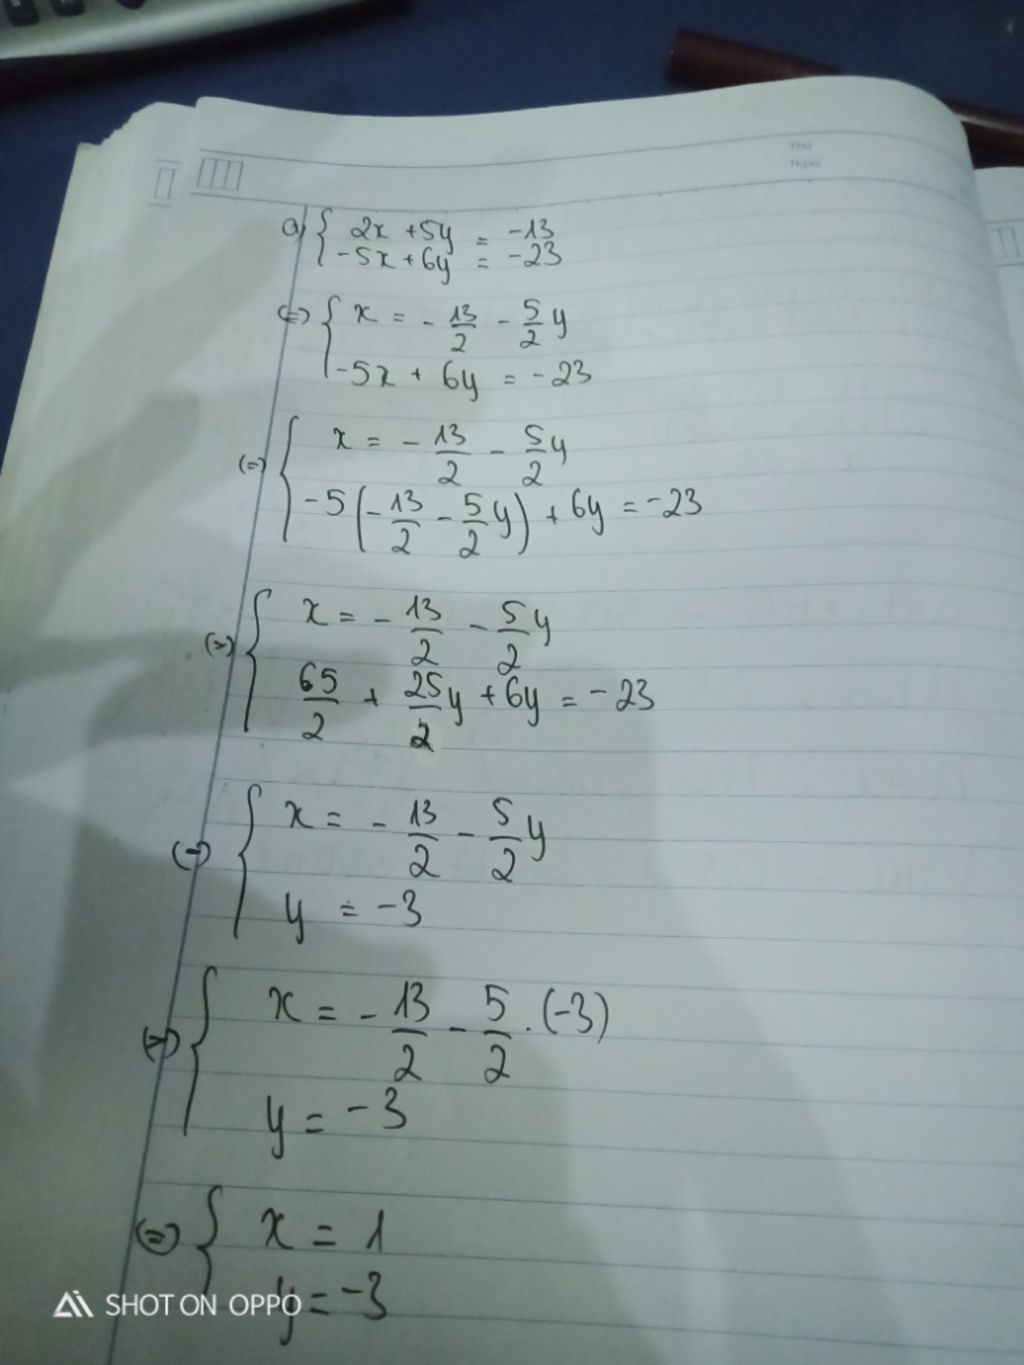 Thứ
Ngày
a) { 2x + 5y = -13
-5x + 6y = -23
(=) { x = - 13/2 - 5/2 y
-5x + 6y = -23
(=) { x = - 13/2 - 5/2 y
-5 (- 13/2 - 5/2 y) + 6y = -23
(=) { x = - 13/2 - 5/2 y
65/2 + 25/2 y + 6y = -23
(=) { x = - 13/2 - 5/2 y
y = -3
(=) { x = - 13/2 - 5/2 . (-3)
y = -3
(=) { x = 1
y = -3
SHOT ON OPPO